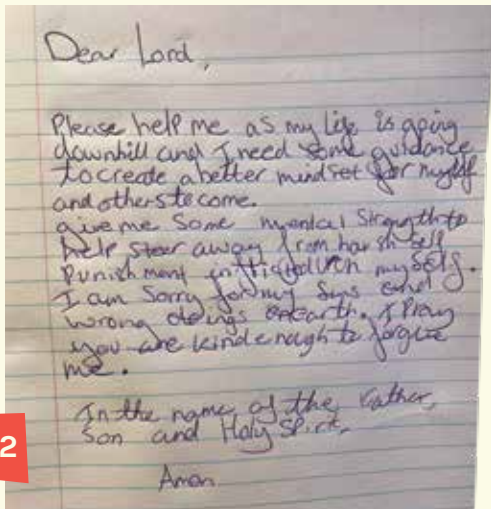 Dear Lord,
Please help me as my life is going
downhill and I need some guidance
to create a better mindset for myself
and others to come.
give me some mental strength to
help steer away from harsh self
punishment inflicted on myself.
I am sorry for my sins and
wrong doings on earth. I pray
you are kind enough to forgive
me.
In the name of the Father,
Son and Holy Spirit,
Amen
2